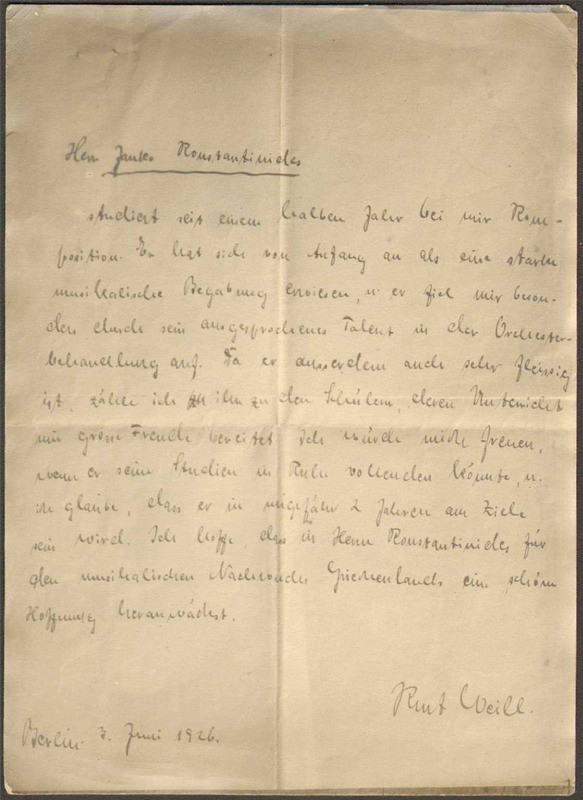 Herr Janko Konstantinides
studiert seit einem halben Jahr bei mir Kom-
position. Er hat sich von Anfang an als eine starke
musikalische Begabung erwiesen, u. er fiel mir beson-
ders durch sein ausgesprochenes Talent in der Orchester-
behandlung auf. Da er ausserdem auch sehr fleissig
ist, zähle ich ihn zu den Schülern, deren Unterricht
mir grosse Freude bereitet. Ich würde mich freuen,
wenn er seine Studien in Ruhe vollenden könnte, u.
ich glaube, dass er in ungefähr 2 Jahren am Ziele
sein wird. Ich hoffe, dass in Herrn Konstantinides für
den musikalischen Nachwuchs Griechenlands eine schöne
Hoffnung heranwächst.
Kurt Weill.
Berlin Juni 1926.